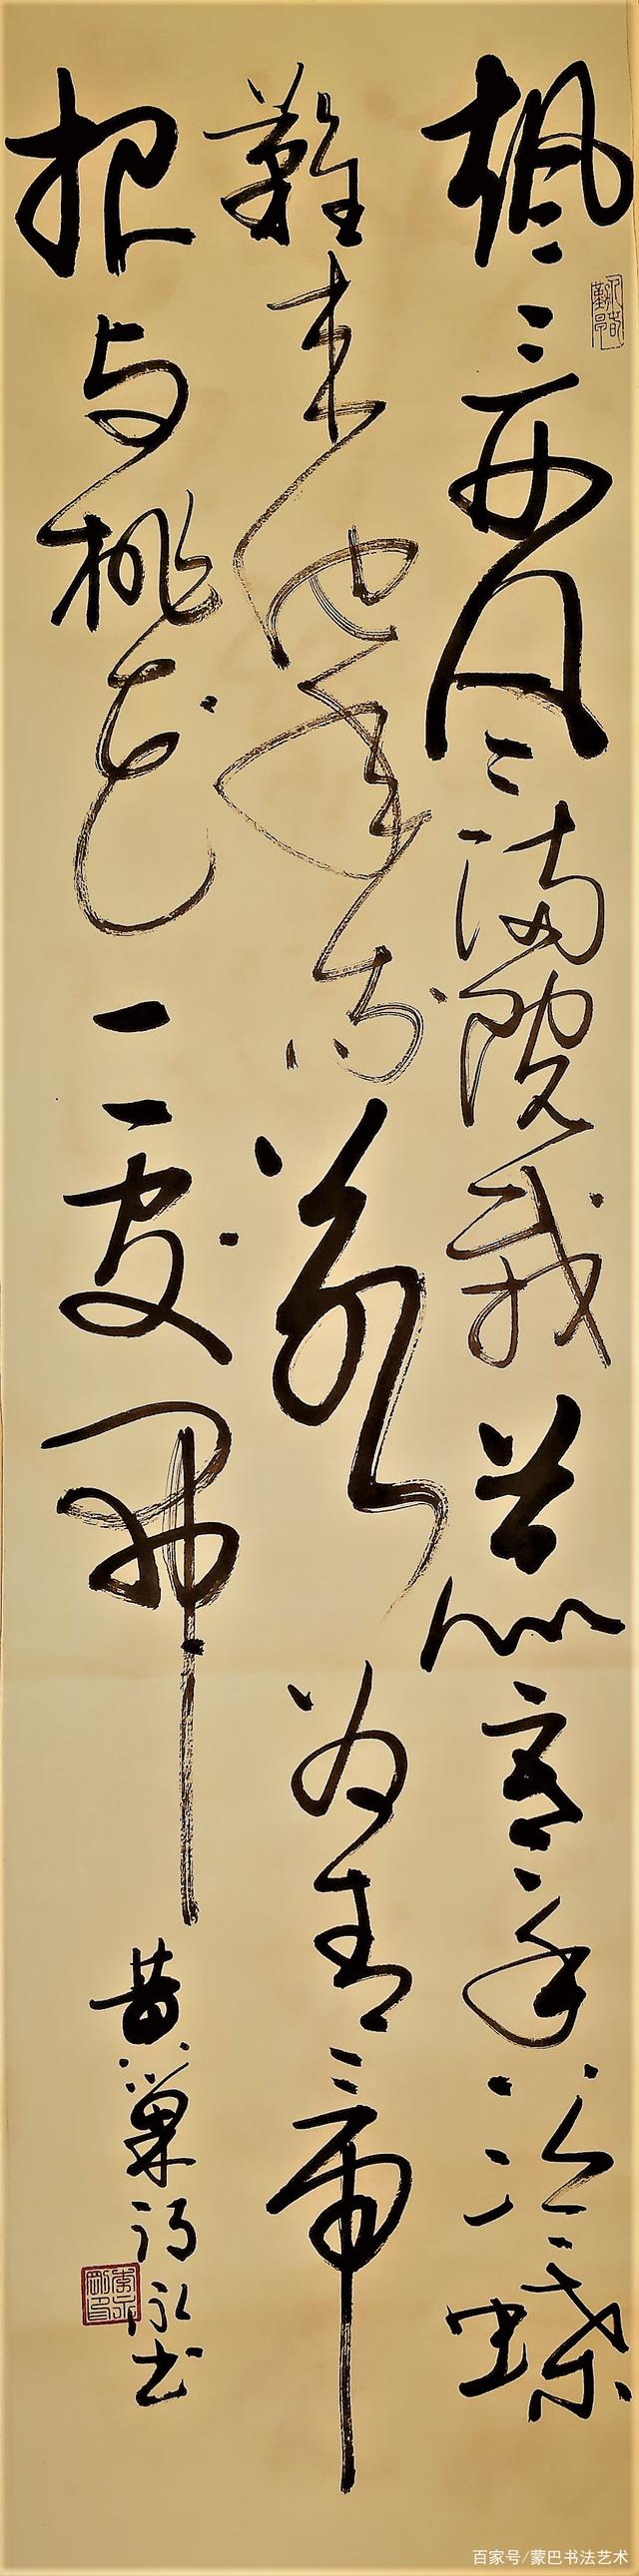 飒飒西风满院栽蕊寒香冷蝶
難来他年我若为青帝
报与桃花一处开
黄巢诗 永书
百家号/蒙巴书法艺术